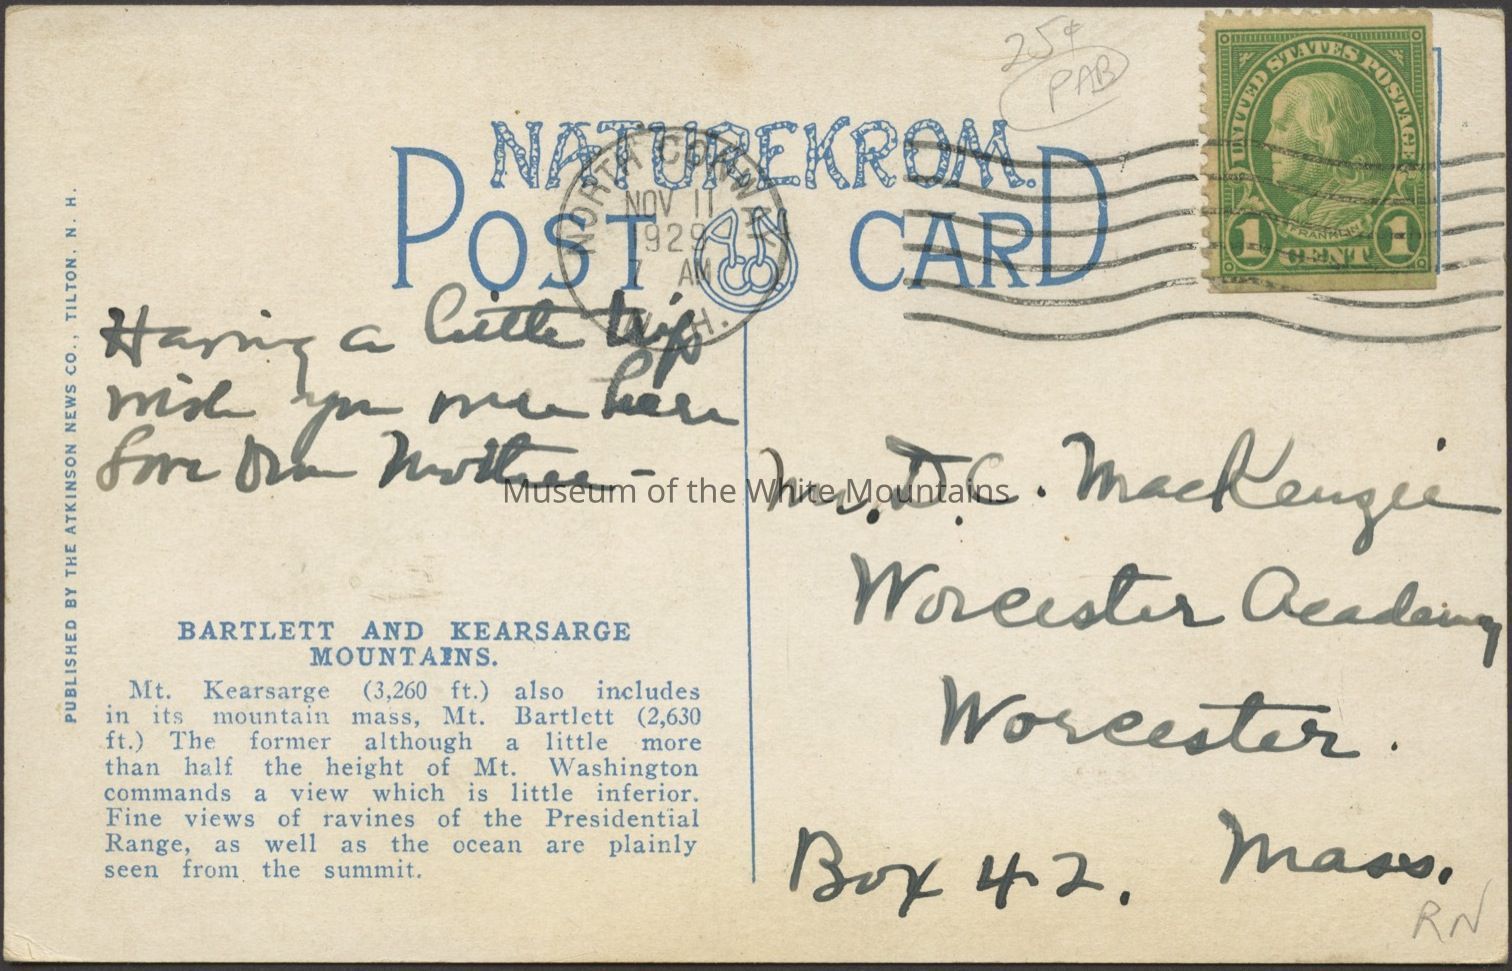 25¢
PAB
UNITED STATES POSTAGE
FRANKLIN
1 CENT 1
NATUREKROM.
POST CARD
NORTH CONWAY
NOV 11
1929
7 AM
N. H.
PUBLISHED BY THE ATKINSON NEWS CO., TILTON, N. H.
Having a little trip
wish you were here
Love Mother -
Museum of the White Mountains
Mr. D. C. MacKenzie
Worcester Academy
Worcester.
Mass.
Box 42.
RN
BARTLETT AND KEARSARGE
MOUNTAINS.
Mt. Kearsarge (3,260 ft.) also includes
in its mountain mass, Mt. Bartlett (2,630
ft.) The former although a little more
than half the height of Mt. Washington
commands a view which is little inferior.
Fine views of ravines of the Presidential
Range, as well as the ocean are plainly
seen from the summit.